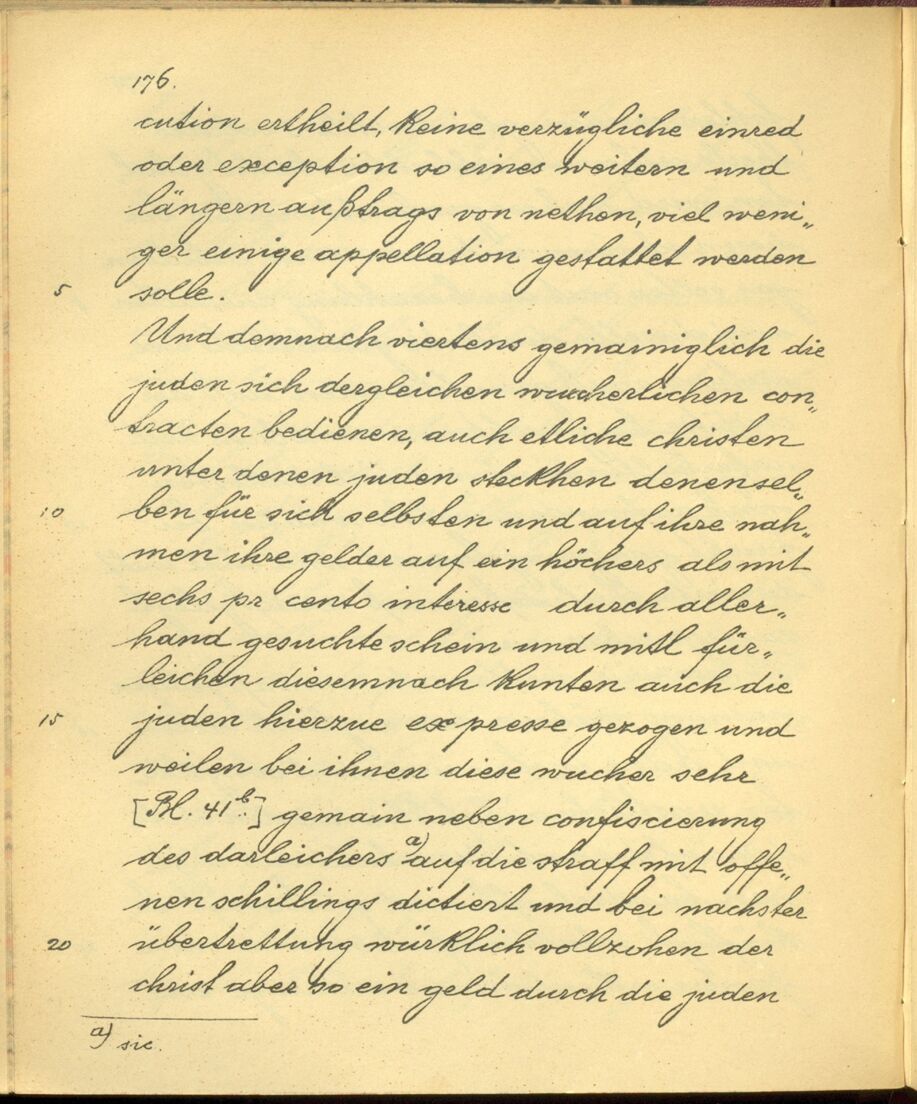 176.
cution ertheilt, keine verzügliche einred
oder exception so eines weitern und
längern außtrags von nethen, viel weni„
ger einige appellation gestattet werden
5 solle.
Und demnach viertens gemainiglich die
juden sich dergleichen wucherlichen con„
tracten bedienen, auch etliche christen
unter denen juden steckhen denensel„
10 ben für sich selbsten und auf ihre nah„
men ihre gelder auf ein höchers als mit
sechs pr cento interesse durch aller„
hand gesuchte schein und mitl für„
leichen diesemnach kunten auch die
15 juden hierzue expresse gezogen und
weilen bei ihnen diese wucher sehr
[Bl. 41b.] gemain neben confiscierung
des darleichers a) auf die straff mit offe„
nen schillings dictiert und bei nachster
20 übertrettung würklich vollzohen der
christ aber so ein geld durch die juden
a) sic.